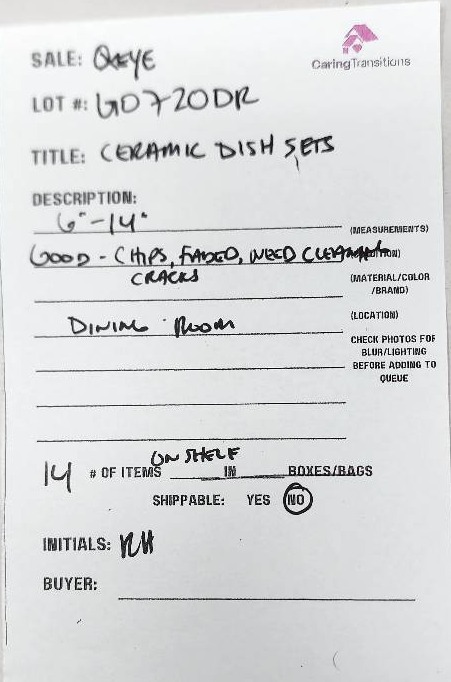 CaringTransitions
SALE: QKEYE
LOT #: GO720DR
TITLE: CERAMIC DISH SETS
DESCRIPTION:
6"-14" (MEASUREMENTS)
GOOD - CHIPS, FADED, NEED CLEANING
CRACKS
(MATERIAL/COLOR
/BRAND)
DINING ROOM (LOCATION)
CHECK PHOTOS FOR
BLUR/LIGHTING
BEFORE ADDING TO
QUEUE
ON SHELF
14 # OF ITEMS IN BOXES/BAGS
SHIPPABLE: YES NO
INITIALS: RH
BUYER: